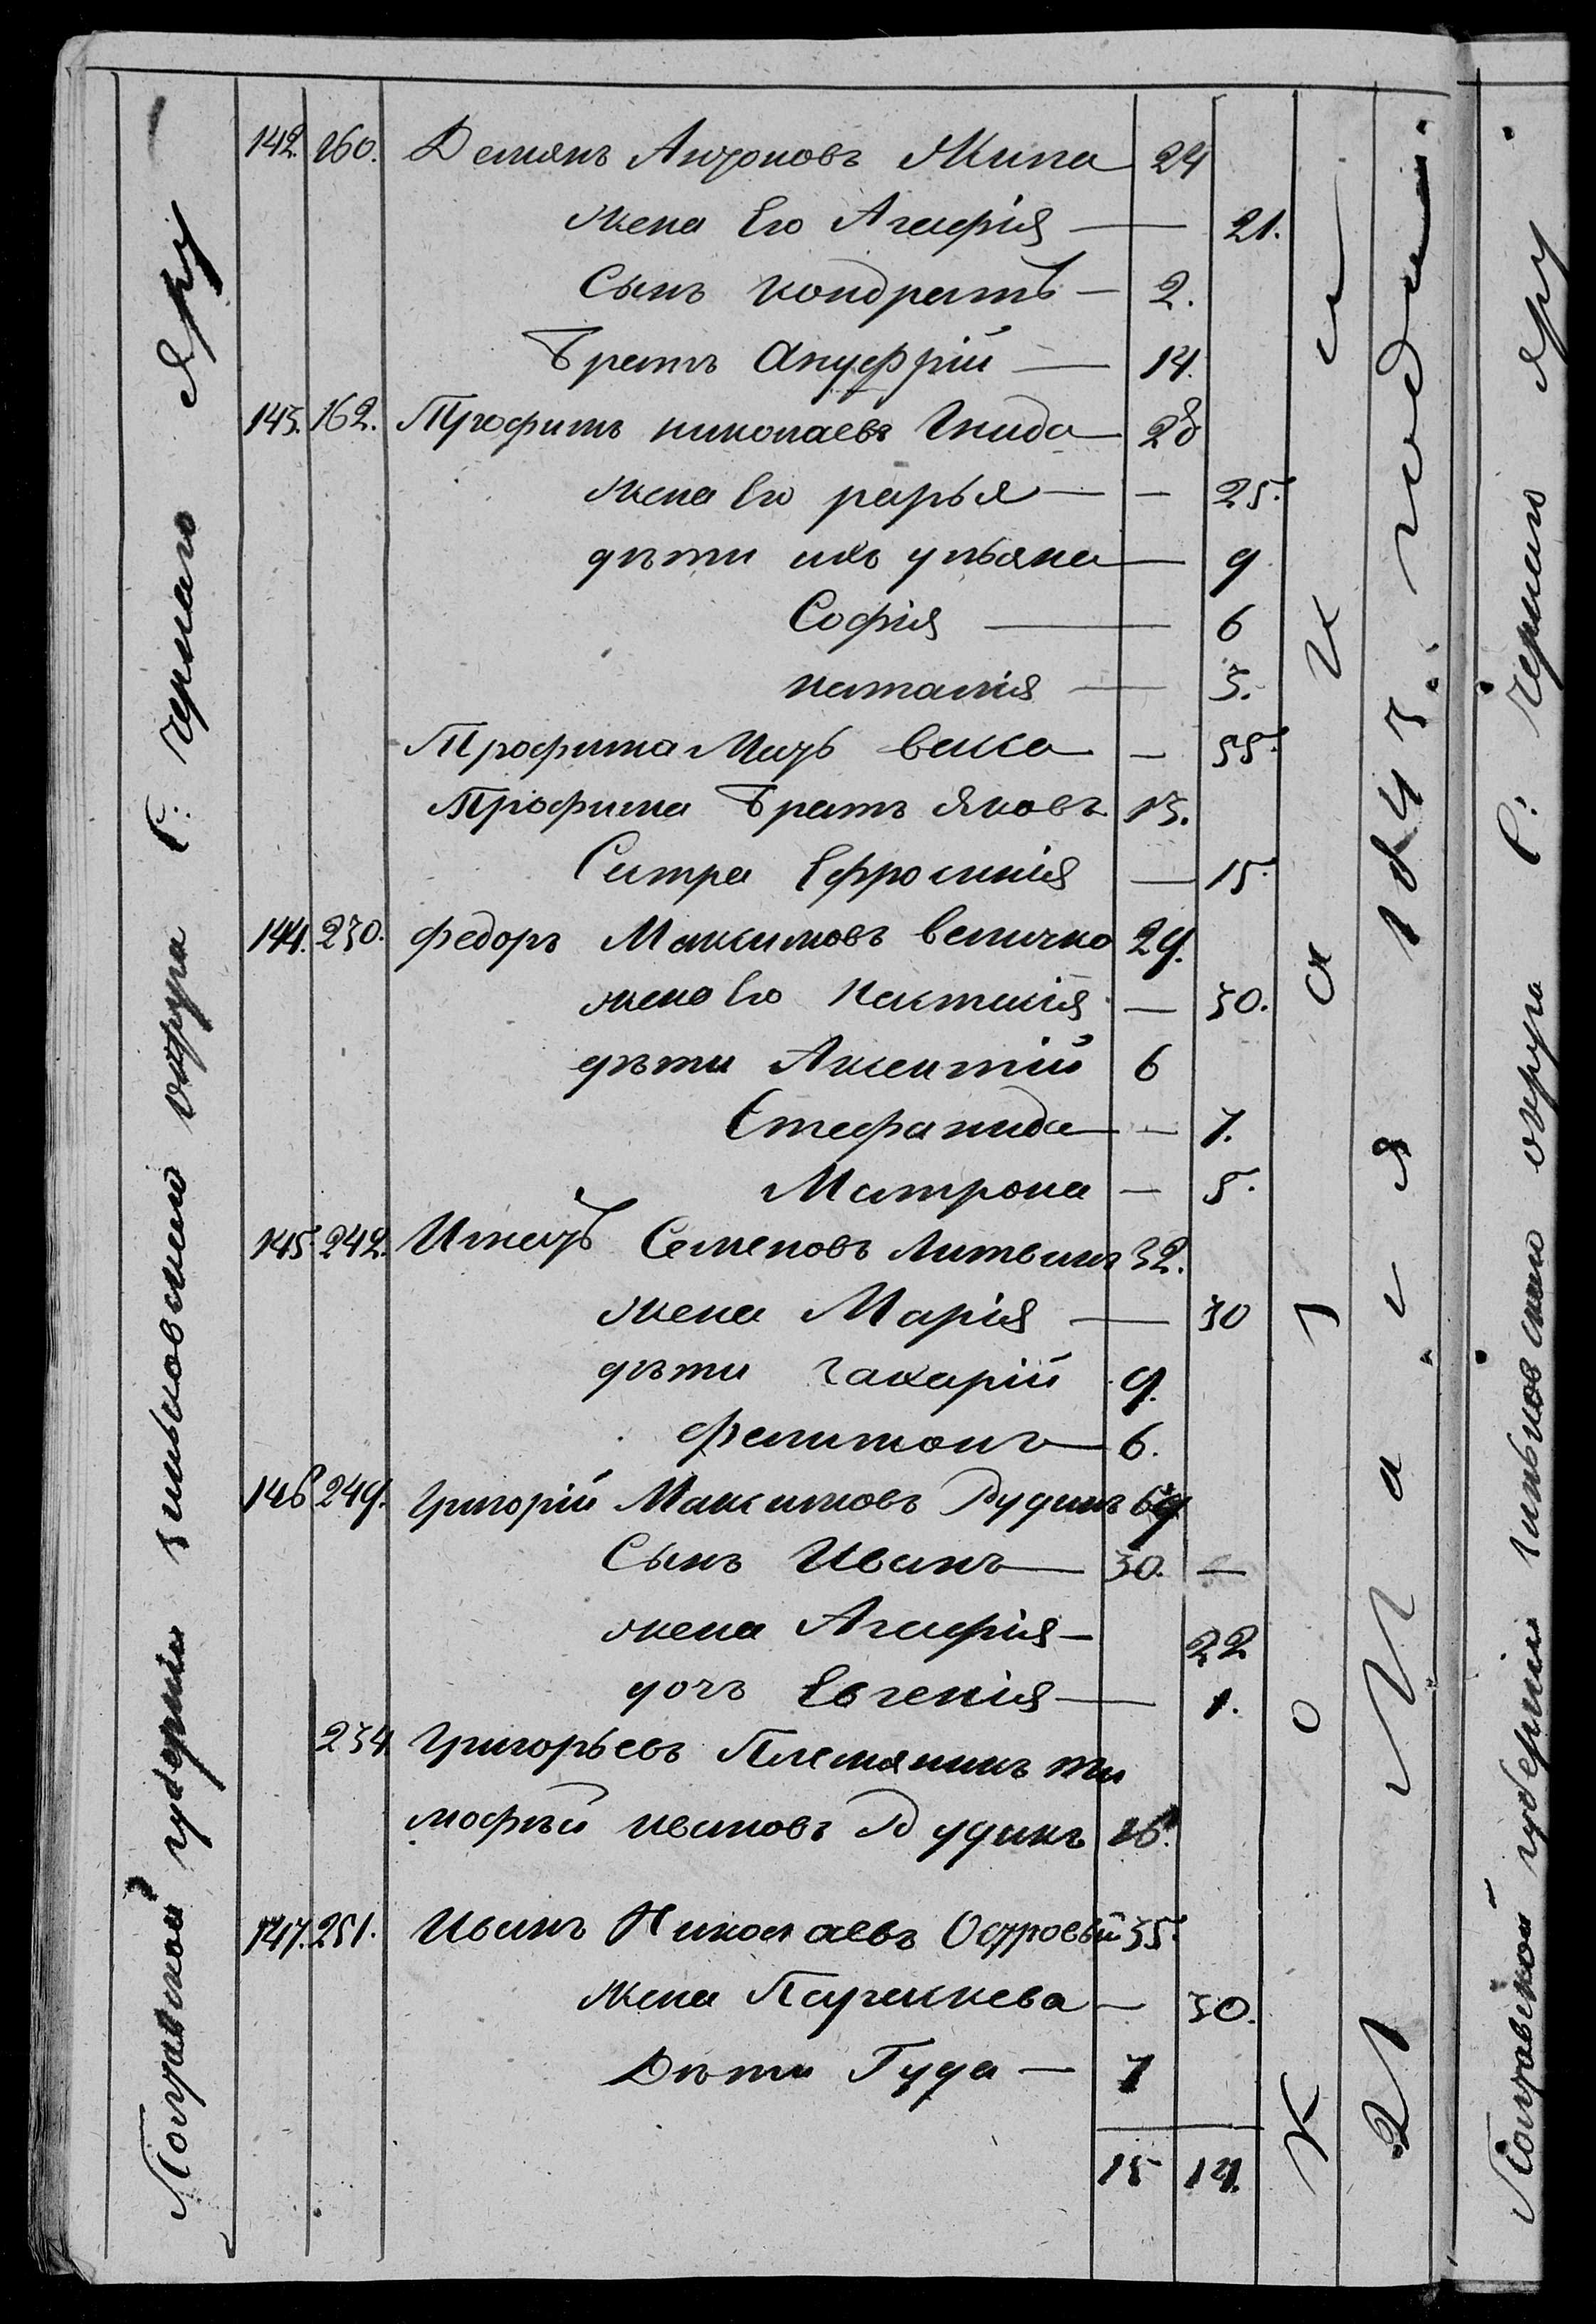 Полтавской губерніи зиньковского округа С: Чернаго Яру
142. 160. Демянъ Антоновъ Жила 24
жена Его Агафія — 21.
Сынъ кондратъ — 2.
Братъ Ануфрій — 14.
143. 162. Трофимъ николаевъ Гнида 28
жена Его дарья — — 25.
дѣти ихъ ульяна — 9
Софія — 6
наталія — 3.
Трофима Мать васса — 55.
Трофима Братъ Яковъ 13.
Систра Ефросинія — 15.
144. 230. Федоръ Максимовъ величко 29.
жена Его Настасія — 30.
дѣти Аксентій 6
Стефанида — 7.
Матрона — 5.
145. 242. Игнатъ Семеновъ Литвинъ 32.
жена Марія — 30
дѣти Захарій 9.
Филимонъ — 6.
146 249. Григорій Максимовъ Дудикъ 69
Сынъ Иванъ — 30. —
жена Агафія — 22
дочъ Евгенія — 1.
234. Григорьевъ Племяникъ ти
мофѣй ивановъ Дудикъ 16.
147. 251. Иванъ Николаевъ Островый 35.
жена Параскева — 30.
Дѣти Гуда — 7
15 14.
К о з а к и
21 Мая 1843. года
Полтавской губерніи зиньковского округа С: Чернаго Яру